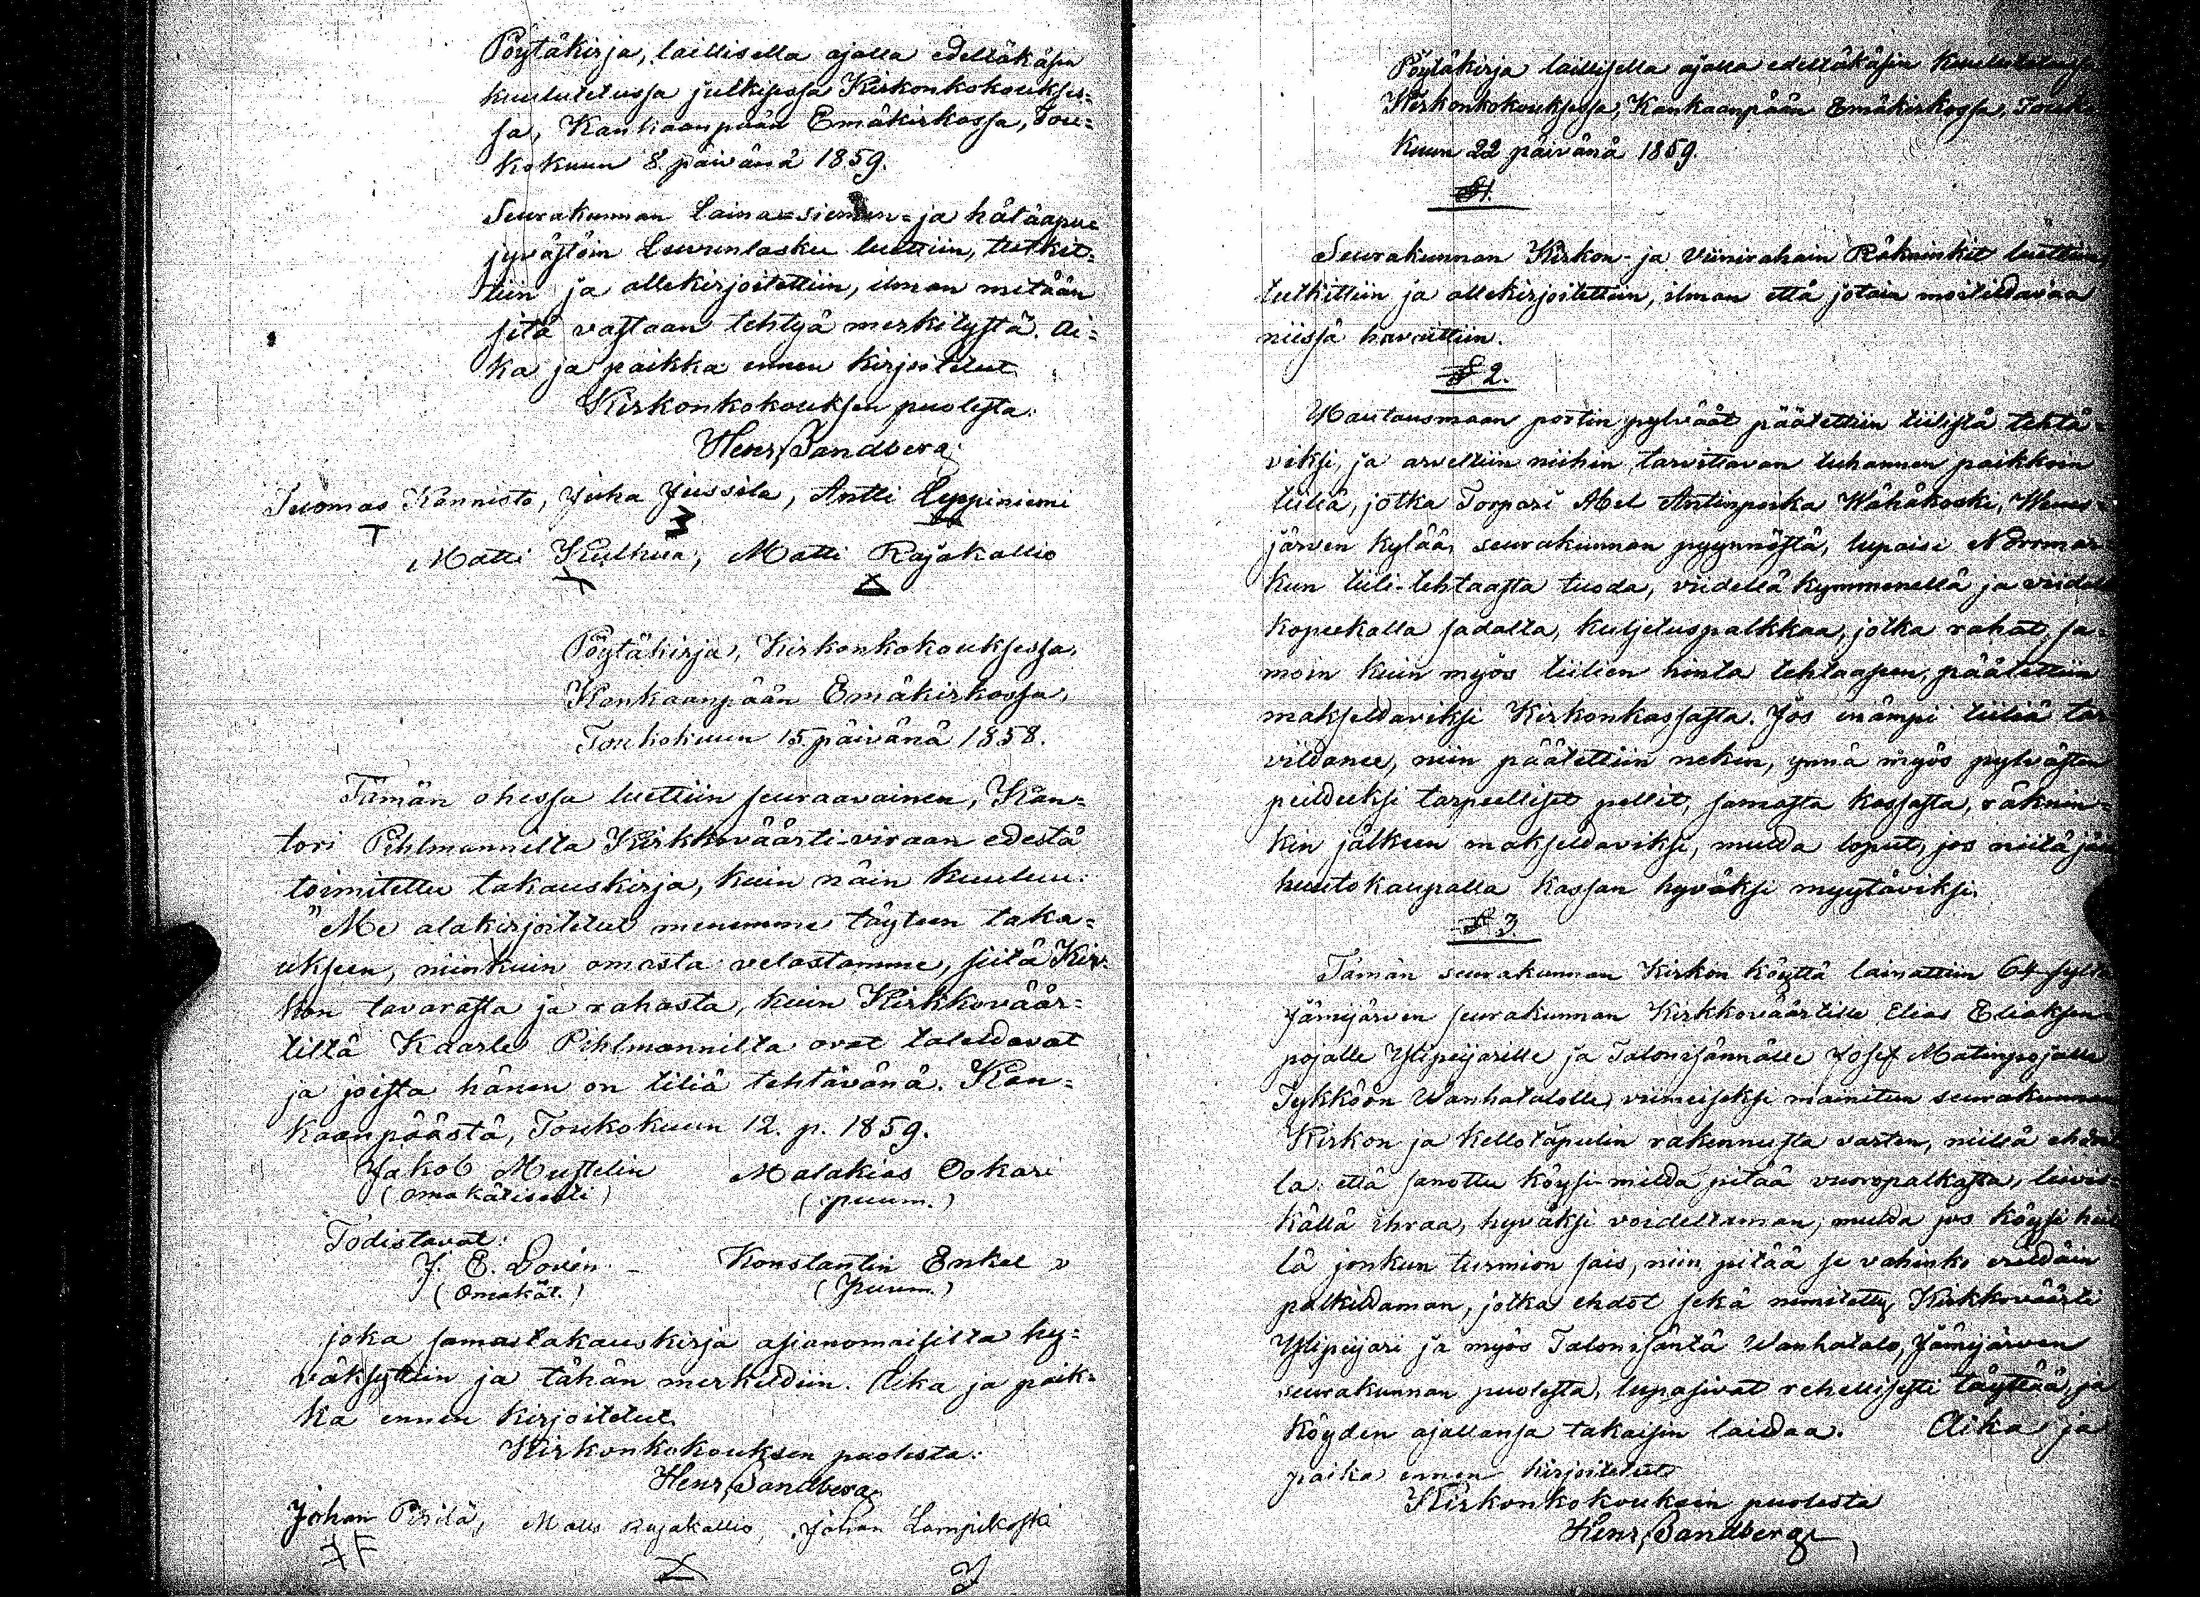 Pöytäkirja, laillisella ajalla edelläkäsin
kuulutetussa julkisessa Kirkonkokoukses-
sa, Kankaanpään Emäkirkossa, Tou-
kokuun 8 päivänä 1859.
Seurakunnan laina-siemen- ja hätäapu-
jyvästöin Luvunlasku luettiin, tutkit-
tiin ja allekirjoitettiin, ilman mitään
sitä vastaan tehtyä merkitystä. Ai-
ka ja paikka ennen kirjoitetut
Kirkonkokouksen puolesta:
Henr, Sandberg
Tuomas Kannisto, Juha Jussila, Antti Leppiniemi
Matti Kulkua, Matti Rajakallio
Pöytäkirja, Kirkonkokouksessa,
Kankaanpään Emäkirkossa,
Toukokuun 15 päivänä 1858.
Tämän ohessa luettiin seuraavainen, Kan-
tori Pihlmannilta Kirkkoväärti-viraan edestä
toimitettu takauskirja, kuin näin kuuluu:
"Me alakirjoitetut menemme täyteen taka-
ukseen, niinkuin omasta velastamme, siitä Kir-
kon tavarasta ja rahasta, kuin Kirkkoväär-
tiltä Kaarle Pihlmannilta ovat taleldavat
ja joista hänen on tiliä tehtävänä. Kan-
kaanpäästä, Toukokuun 12. p. 1859.
Jakob Mustelin Malakias Ookari
(omakätisesti) (puum.)
Todistavat:
J. E. Dovén Konstantin Enkel
(Omakät.) (Puum.)
joka sama takauskirja asianomaisilta hy-
väksyttiin ja tähän merkildiin. Aika ja paik-
ka ennen kirjoitetut
Kirkonkokouksen puolesta:
Henr, Sandberg
Johan Pirilä, Matti Rajakallio, Johan Lampikoski
Pöytäkirja laillisella ajalla edelläkäsin
Kirkonkokouksessa, Kankaanpään Emäkirkossa, Touko
kuun 22 päivänä 1859.
§ 1.
Seurakunnan Kirkon- ja Viinirahain Räkninkit luettiin,
tutkittiin ja allekirjoitettiin, ilman että jotain moitildavaa
niissä havaittiin.
§ 2.
Hautausmaan portin pylväät päätettiin tiilistä tehtä-
viksi, ja arveltiin niihin tarvittavan tuhannen paikkoin
tiiliä, jotka Torpari Abel Antinpoika Wähäkoski,
järven kylää, seurakunnan pyynnöstä, lupaisi Norrmar
kun tiili-tehtaasta tuoda, viidellä kymmenellä ja viidell
kopeekalla sadalta, kuljetuspalkkaa, jotka rahat, sa-
moin kuin myös tiilien hinta tehtaasen, päätettiin
makseldaviksi Kirkonkassasta. Jos enämpi tiiliä tar
vildanee, niin päätettiin nekin, ynnä myös pylvästen
peildeeksi tarpeelliset pellit, samasta kassasta, räknin-
kin jälkeen makseldaviksi, mulda loput, jos niitä jää
huutokaupalla kassan hyväksi myytäviksi.
§ 3.
Tämän seurakunnan Kirkon köyttä lainattiin 64 syltä
Jämijärven seurakunnan Kirkkoväärtille Elias Eliaksen
pojalle Ylipeijarille ja Talonisännälle Josef Matinpojalle
Tykköön Wanhatalolle, viimeiseksi mainitun seurakunnan
Kirkon ja kellotapulin rakennusta varten, niillä ehdoi
la: että sanottu köysi milda pitää vuoropalkasta, leivis-
källä ihraa, hyväksi voideltaman; mulda jos köysi hei
lä jonkun turmion sais, niin pitää se vahinko
palkildaman, jotka ehdot sekä nimitetty Kirkkoväärti
Ylipeijari ja myös Talonisäntä Wanhatalo, Jämijärven
seurakunnan puolesta, lupasivat rehellisesti täyttää, ja
köyden ajallansa takaisin laidaa. Aika ja
paika ennen kirjoitetut
Kirkonkokouksin puolesta
Henr, Sandberg